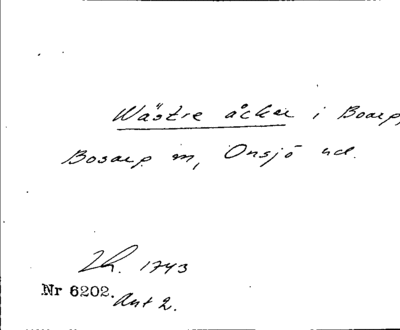 Wästre åcker i Boarp,
Bosarp sn, Onsjö hd.
Lh. 1743
Nr 6202. Akt 2.